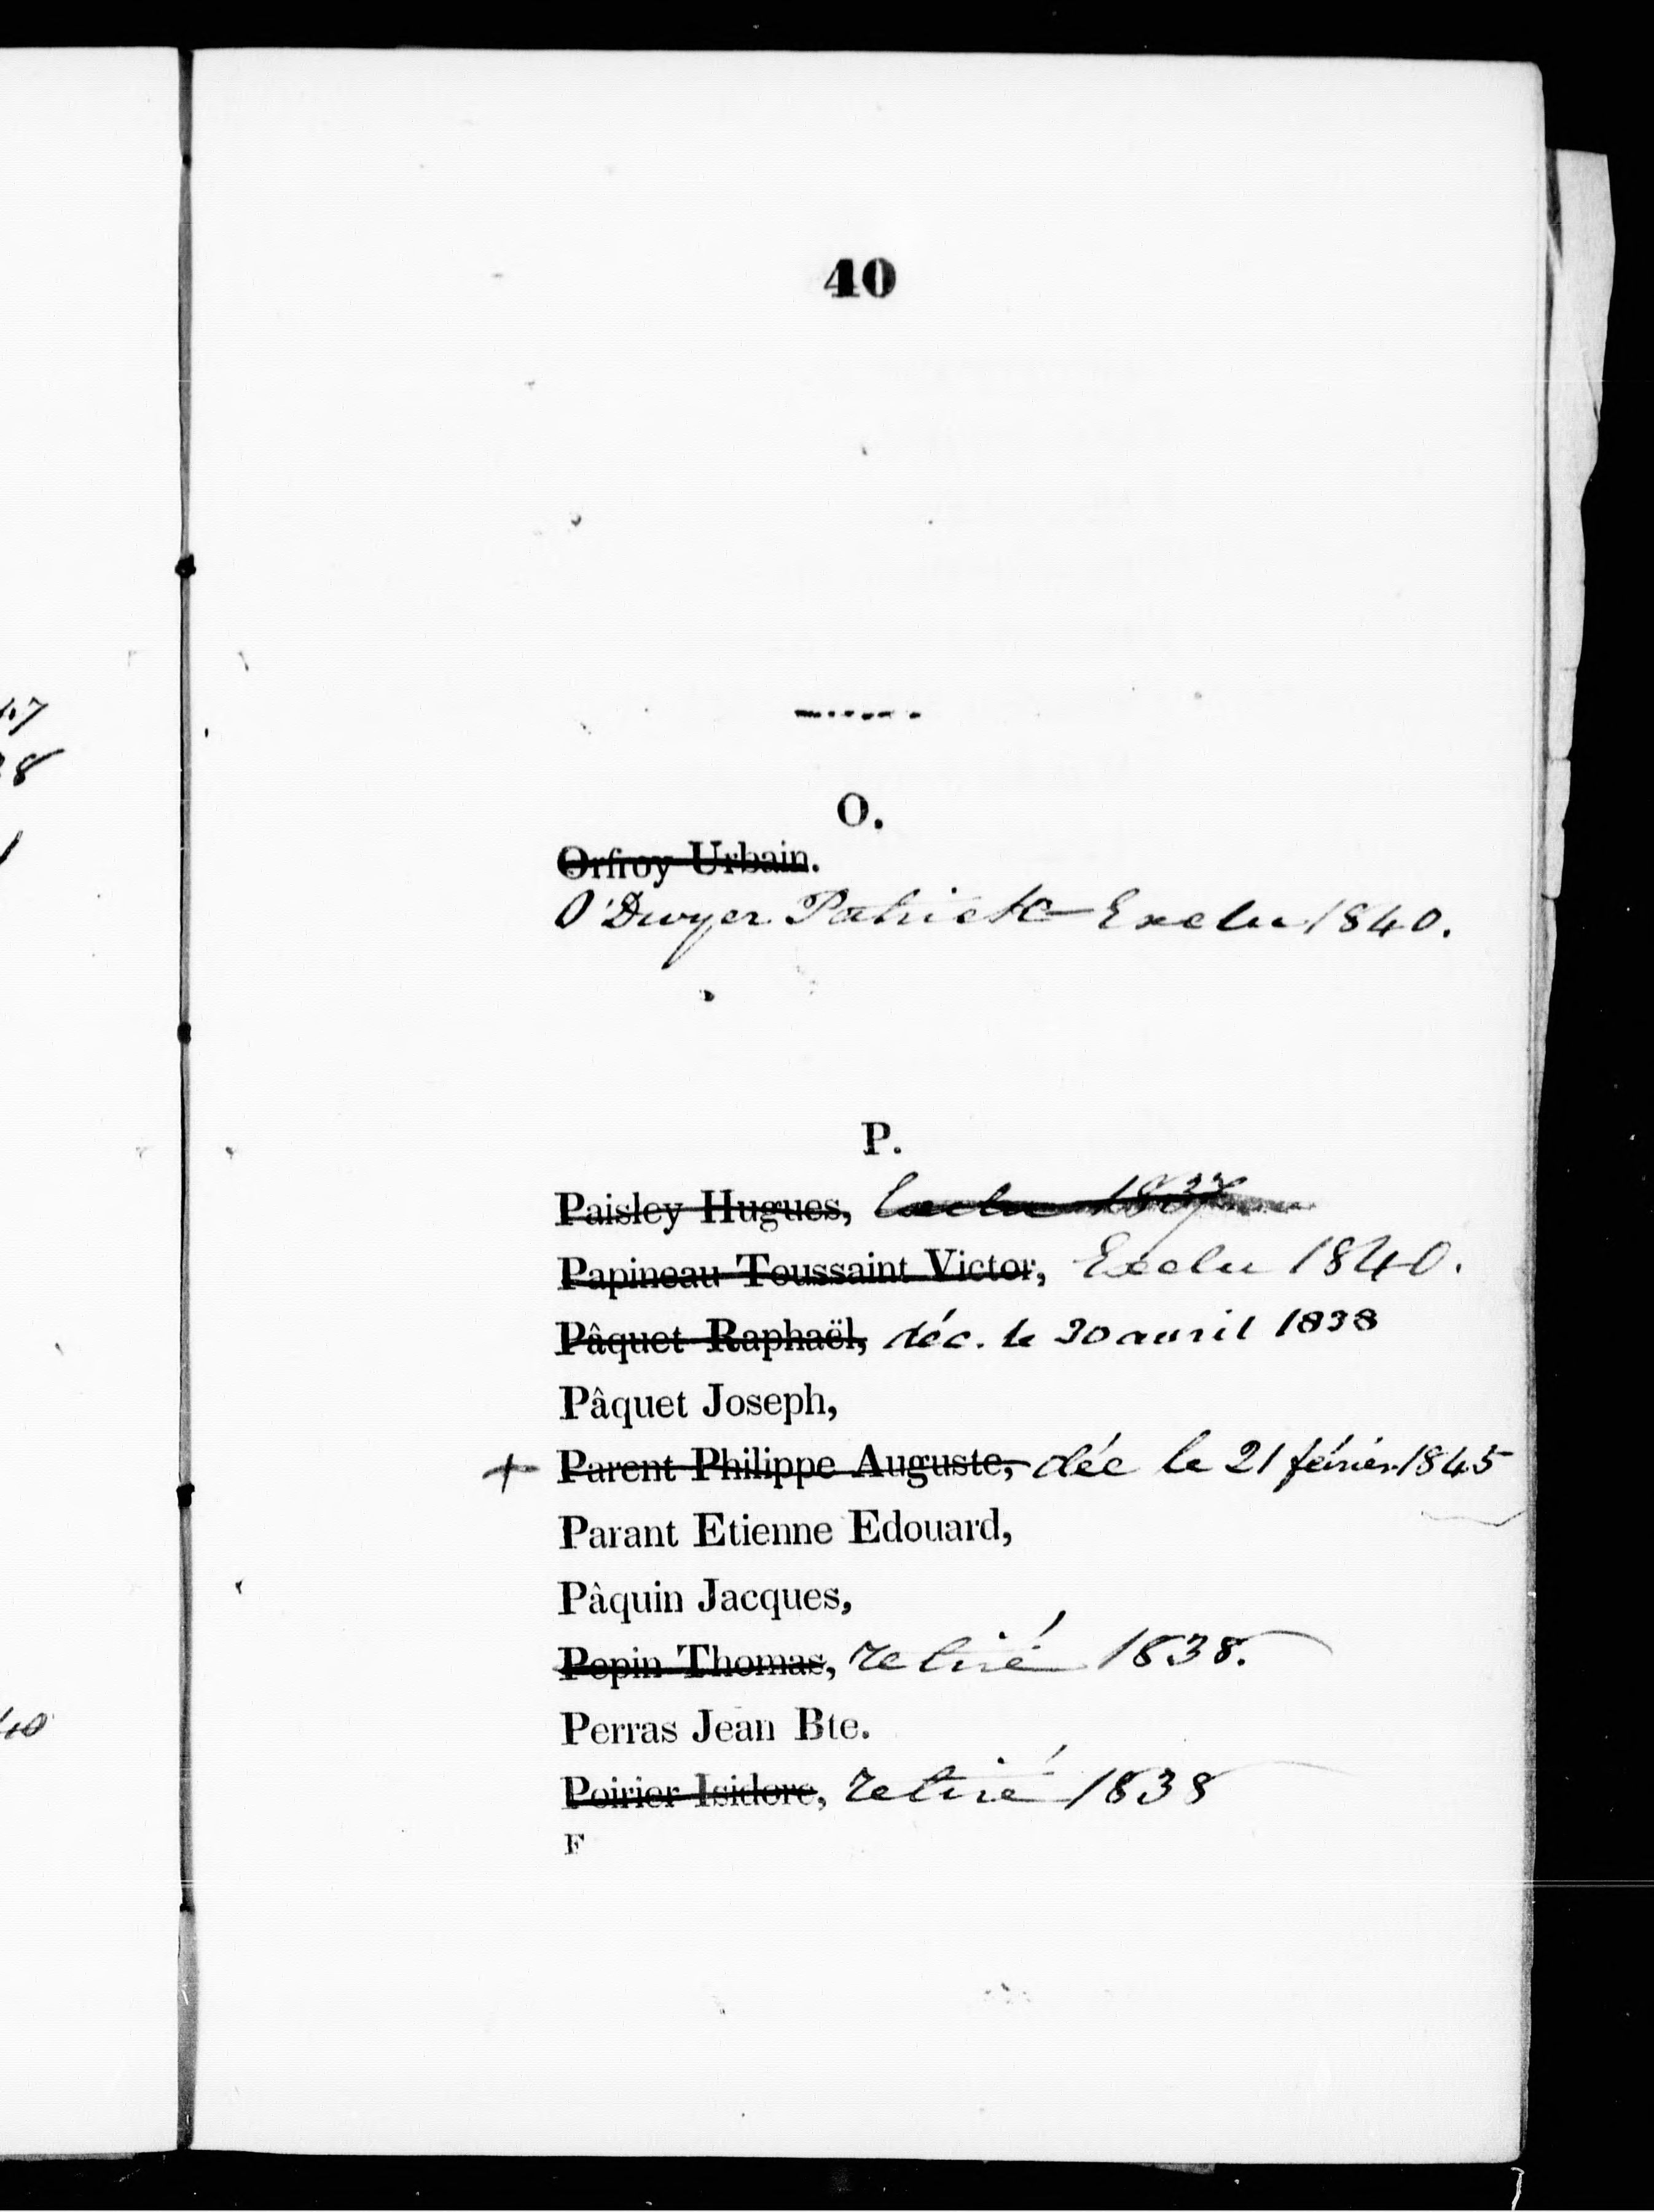 40
O.
Orfroy Urbain.
O'Dwyer Patrick Exclu 1840.
P.
Paisley Hugues, Exclu 1837
Papineau Toussaint Victor, Exclu 1840.
Pâquet Raphaël, déc. le 30 avril 1838
Pâquet Joseph,
+ Parent Philippe Auguste, déc le 21 février 1845
Parant Etienne Edouard,
Pâquin Jacques,
Pepin Thomas, retiré 1838.
Perras Jean Bte.
Poirier Isidore, retiré 1838
F